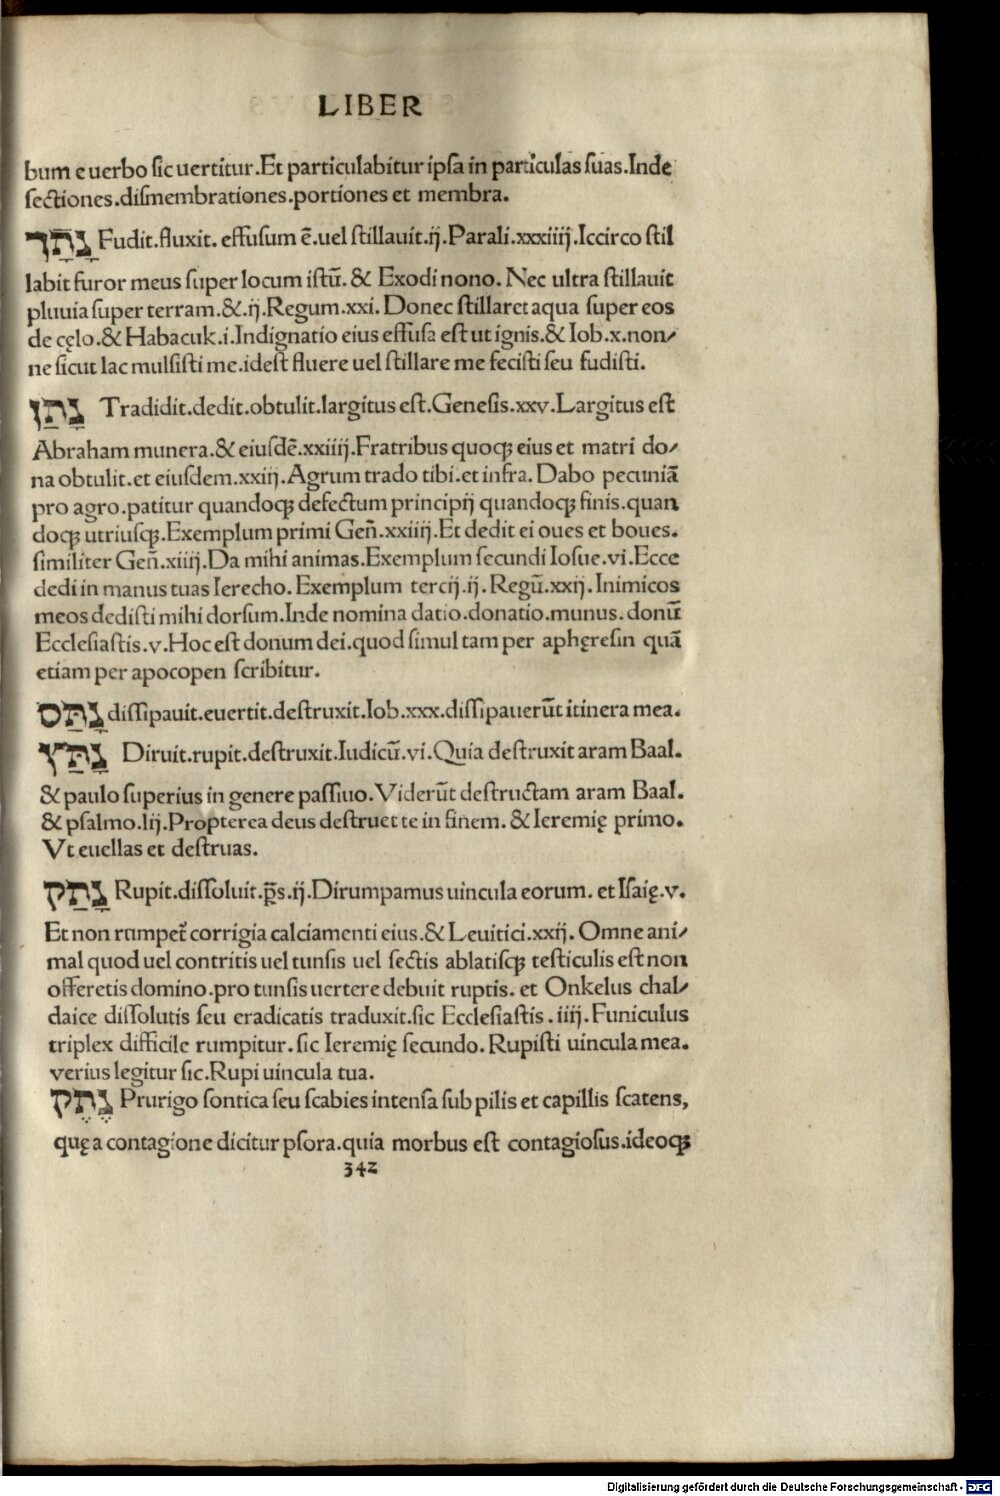 LIBER
bum e uerbo sic uertitur.Et particulabitur ipsa in particulas suas.Inde
sectiones.dismembrationes.portiones et membra.
נָתַך Fudit.fluxit. effusum ē.uel stillauit.ij.Parali.xxxiiij.Iccirco stil
labit furor meus super locum istū. & Exodi nono. Nec ultra stillauit
pluuia super terram.&.ij.Regum.xxi. Donec stillaret aqua super eos
de cęlo.& Habacuk.i.Indignatio eius effusa est ut ignis.& Iob.x.non⸗
ne sicut lac mulsisti me.idest fluere uel stillare me fecisti seu fudisti.
נָתַן Tradidit.dedit.obtulit.largitus est.Genesis.xxv.Largitus est
Abraham munera.& eiusdē.xxiiij.Fratribus quoqꝫ eius et matri do⸗
na obtulit.et eiusdem.xxiij.Agrum trado tibi.et infra.Dabo pecuniā
pro agro.patitur quandoqꝫ defectum principij quandoqꝫ finis.quan
doqꝫ utriusqꝫ.Exemplum primi Geñ.xxiiij.Et dedit ei oues et boues.
similiter Geñ.xiiij.Da mihi animas.Exemplum secundi Iosue.vi.Ecce
dedi in manus tuas Ierecho.Exemplum tercij.ij.Regū.xxij.Inimicos
meos dedisti mihi dorsum.Inde nomina datio.donatio.munus.donū
Ecclesiastis.v.Hoc est donum dei.quod simul tam per aphęresin quā
etiam per apocopen scribitur.
נָתַס dissipauit.euertit.destruxit.Iob.xxx.dissipauerūt itinera mea.
נָתַץ Diruit.rupit.destruxit.Iudicū.vi.Quia destruxit aram Baal.
& paulo superius in genere passiuo.Viderūt destructam aram Baal.
& psalmo.lij.Propterea deus destruet te in finem.& Ieremię primo.
Vt euellas et destruas.
נָתַק Rupit.dissoluit.p̄s.ij.Dirumpamus uincula eorum. et Isaię.v.
Et non rumpet̄ corrigia calciamenti eius.& Leuitici.xxij. Omne ani⸗
mal quod uel contritis uel tunsis uel sectis ablatisqꝫ testiculis est non
offeretis domino.pro tunsis uertere debuit ruptis. et Onkelus chal⸗
daice dissolutis seu eradicatis traduxit.sic Ecclesiastis.iiij.Funiculus
triplex difficile rumpitur.sic Ieremię secundo.Rupisti uincula mea.
verius legitur sic.Rupi uincula tua.
נֶתֶק Prurigo sontica seu scabies intensa sub pilis et capillis scatens,
quę a contagione dicitur psora.quia morbus est contagiosus.ideoqꝫ
342
Digitalisierung gefördert durch die Deutsche Forschungsgemeinschaft - DFG